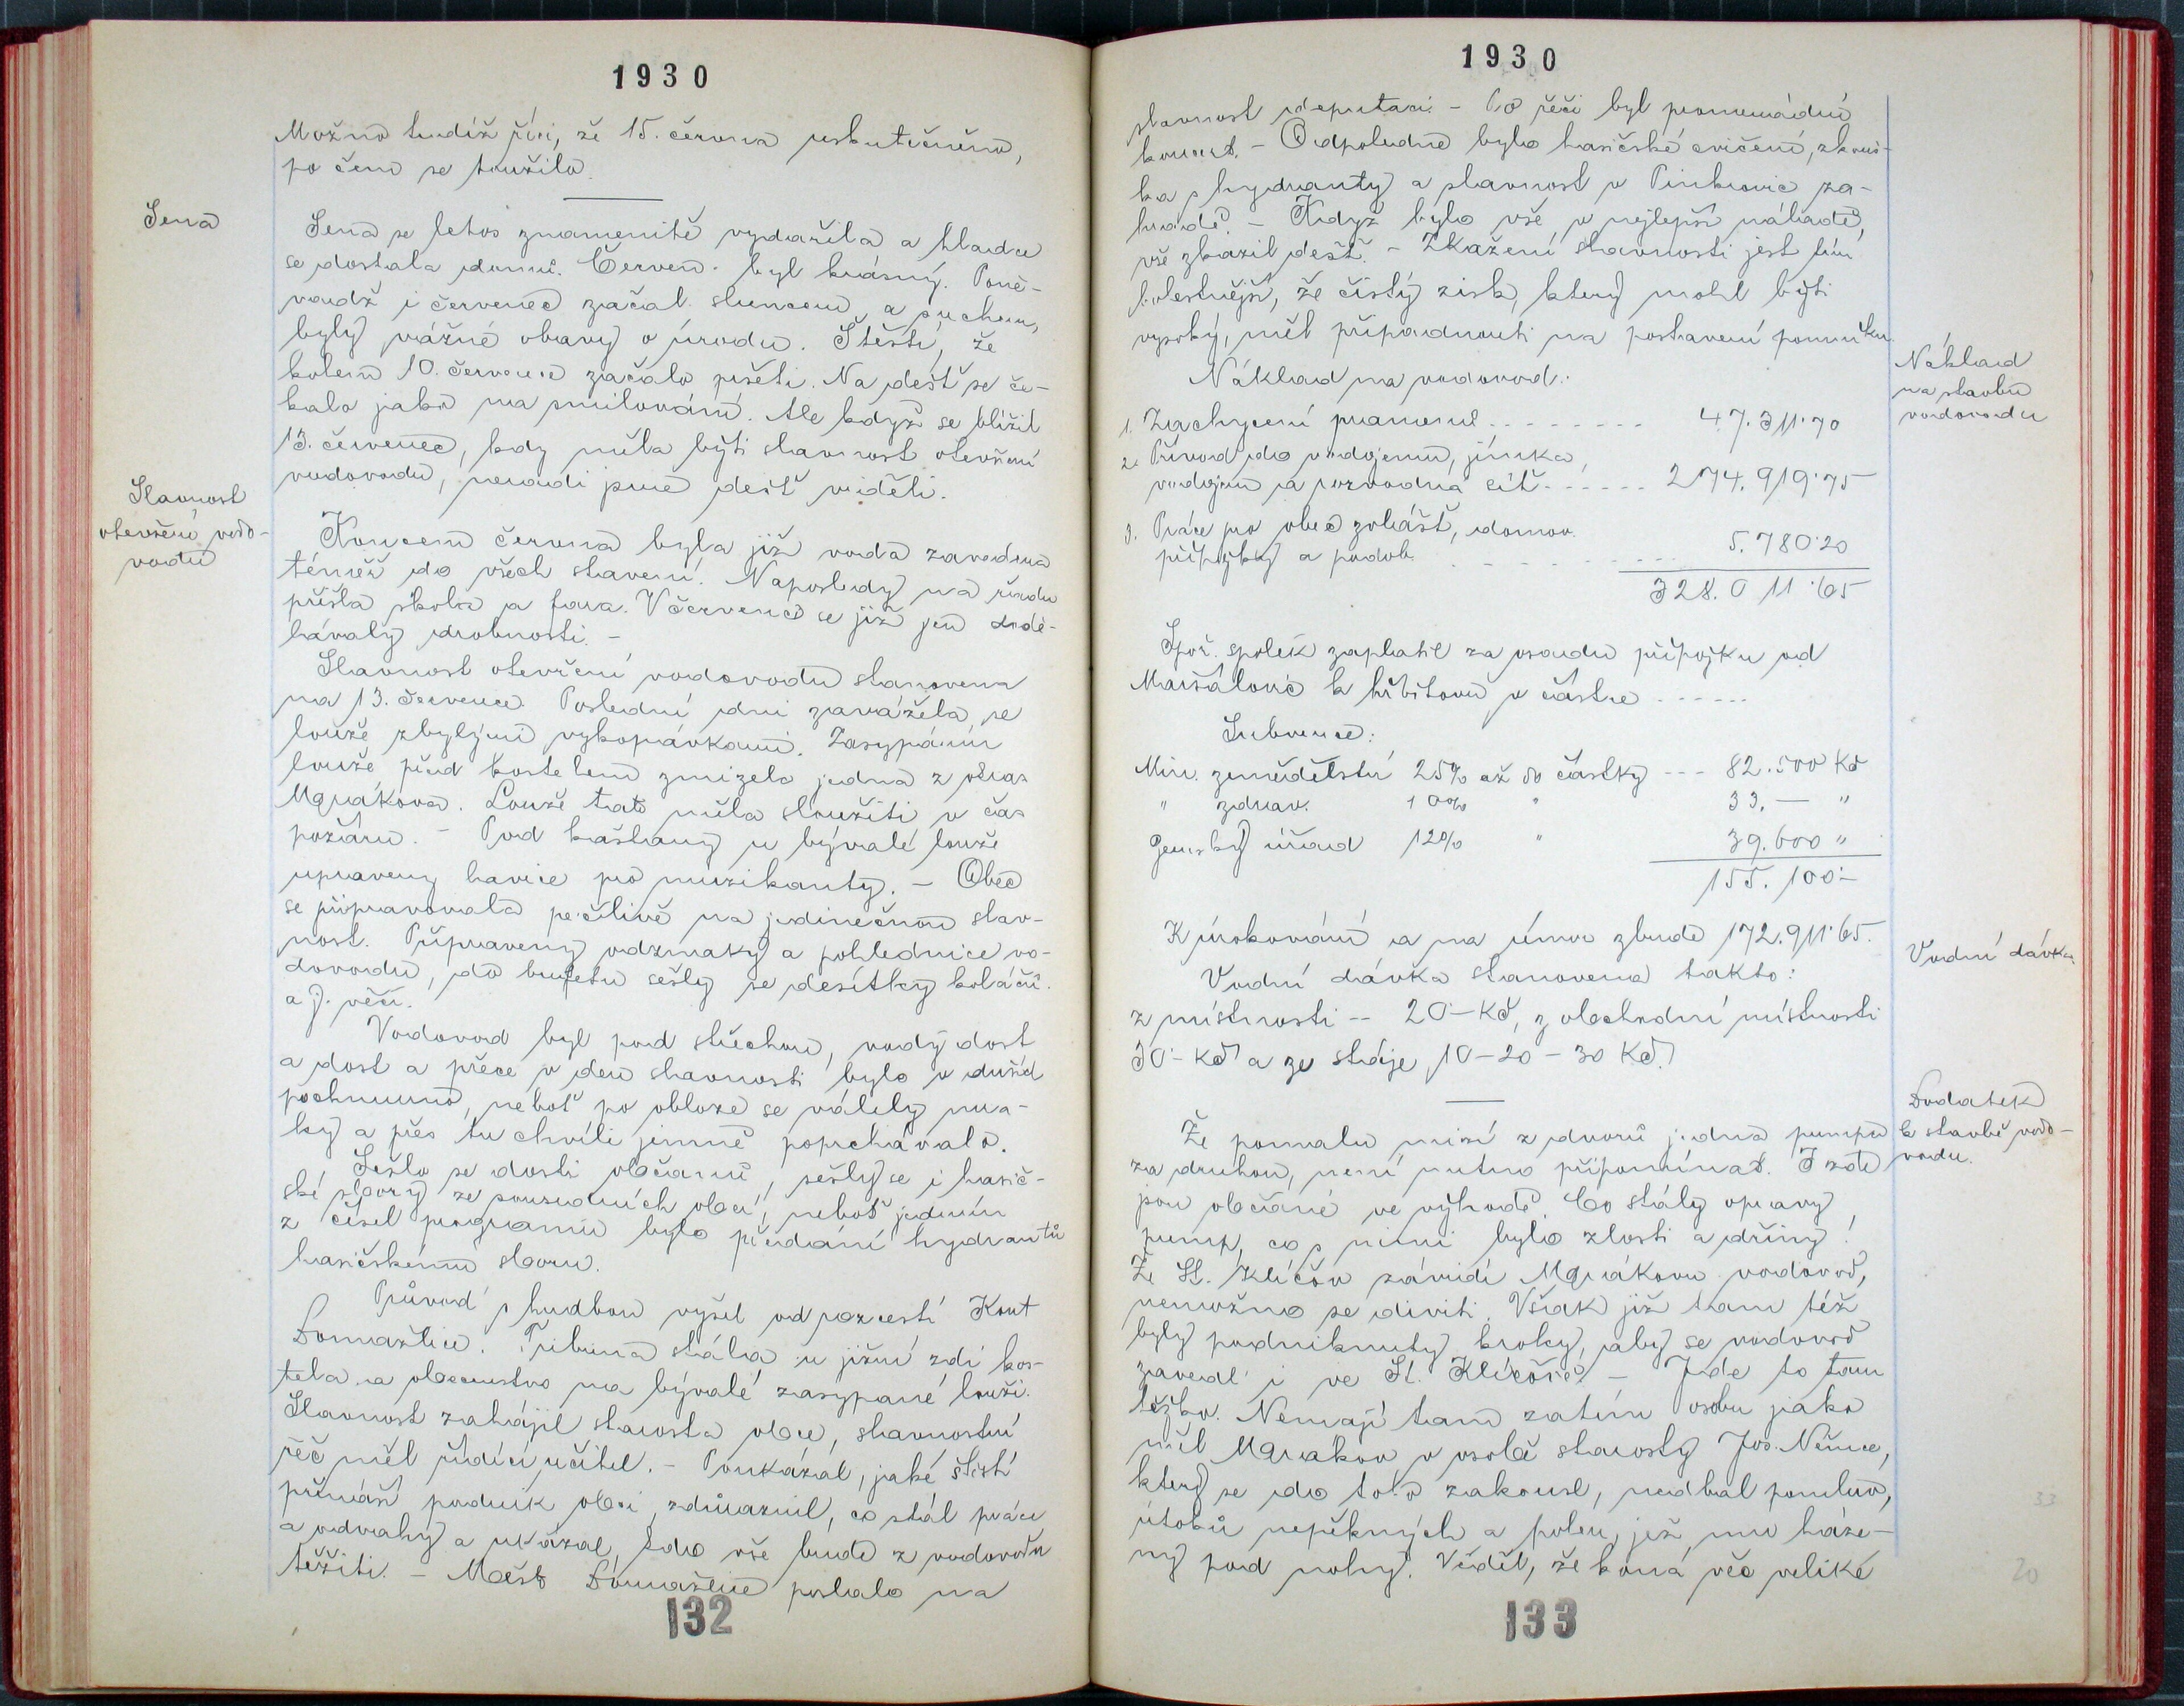 1930
Možno tudíž říci, že 15. června uskutečněno,
po čem se toužilo.
Sena
Sena se letos znamenitě vydařila a hladce
se dostala domů. Červen byl krásný. Poně-
vadž i červenec začal sluncem a suchem,
byly vážné obavy o úrodu. Štěstí, že
kolem 10. července začalo pršeti. Na déšť se če-
kalo jako na smilování. Ale když se blížil
13. červenec, kdy měla býti slavnost otevření
vodovodu, neradi jsme déšť viděli.
Slavnost
otevření vodo-
vodu
Koncem června byla již voda zavedena
téměř do všech stavení. Naposledy na řadu
přišla škola a fara. V červenci se již jen dodě-
lávaly drobnosti. -
Slavnost otevření vodovodu stanovena
na 13. července. Poslední dni zavážela se
louže zbylými vykopávkami. Zasypáním
louže před kostelem zmizela jedna z okras
Mrákova. Louže tato měla sloužiti v čas
požáru. - Pod kaštany u bývalé louže
upraveny lavice pro muzikanty. - Obec
se připravovala pečlivě na jedinečnou slav-
nost. Připraveny odznaky a pohlednice vo-
dovodu, do bufetu sešly se desítky koláčů
a j. věcí.
Vodovod byl pod střechou, vody dost
a dost a přece v den slavnosti bylo v duších
pochmurno, neboť po obloze se válely mra-
ky a přes tu chvíli jemně poprchávalo.
Sešlo se dosti občanů, sešly se i hasič-
ské sbory ze sousedních obcí, neboť jedním
z čísel programu bylo předání hydrantů
hasičskému sboru.
Průvod s hudbou vyšel od rozcestí Kout
Domažlice. Tribuna stála u jižní zdi kos-
tela a obecenstvo na bývalé zasypané louži.
Slavnost zahájil starosta obce, slavnostní
řeč měl řídící učitel. - Poukázal, jaké štěstí
přináší podnik obci, zdůraznil, co stál práce
a odvahy a ukázal, kdo vše bude z vodovodu
těžiti. - Město Domažlice poslalo na
132
1930
slavnost deputaci. - Po řeči byl promenádní
koncert. - Odpoledne bylo hasičské cvičení, zkouš-
ka s hydranty a slavnost v Pinkovic za-
hradě. - Když bylo vše v nejlepší náladě,
vše zkazil déšť. - Zkažení slavnosti jest tím
bolestnější, že čistý zisk, který mohl býti
vysoký, měl připadnouti na postavení pomníku.
Náklad
na stavbu
vodovodu
Náklad na vodovod:
1. Zachycení pramenů - - - - - - - - 47.311·70
2. Přívod do vodojemu, jímka,
vodojem a rozvodná síť - - - - - - 274.919·75
3. Práce pro obec zvlášť, domov.
přípojky a podob. - - - - - - - - 5.780·20
328.011·65
Spoř. spolek zaplatil za osadu přípojku od
Maršálovic k hřbitovu v částce - - - - - -
Subvence:
Min. zemědělství 25% až do částky - - - 82.500 Kč
" zdrav. 10% " 33.— "
Zemský úřad 12% " 39.600 "
155.100·-
K úrokování a na úmor zbude 172.911·65.
Vodní dávka
Vodní dávka stanovena takto:
z místnosti -- 20·- Kč, z obchodní místnosti
30·- Kč a ze stáje 10 - 20 - 30 Kč.
Dodatek
k stavbě vodo-
vodu.
Že pomalu mizí z dvorů jedna pumpa
za druhou, není nutno připomínat. I zde
jsou občané ve výhodě. Co stály opravy
pump, co s nimi bylo zlosti a dřiny!
Že St. Klíčov závidí Mrákovu vodovod,
nemožno se diviti. Však již tam též
byly podniknuty kroky, aby se vodovod
zavedl i ve St. Klíčově. - Jde to tam
těžko. Nemají tam zatím osobu jako
měl Mrákov v osobě starosty Jos. Němce,
který se do toho zakousl, nedbal pomluv,
útoků nepěkných a polen, jež mu háze-
ny pod nohy. Věděl, že koná věc veliké
133
33
20